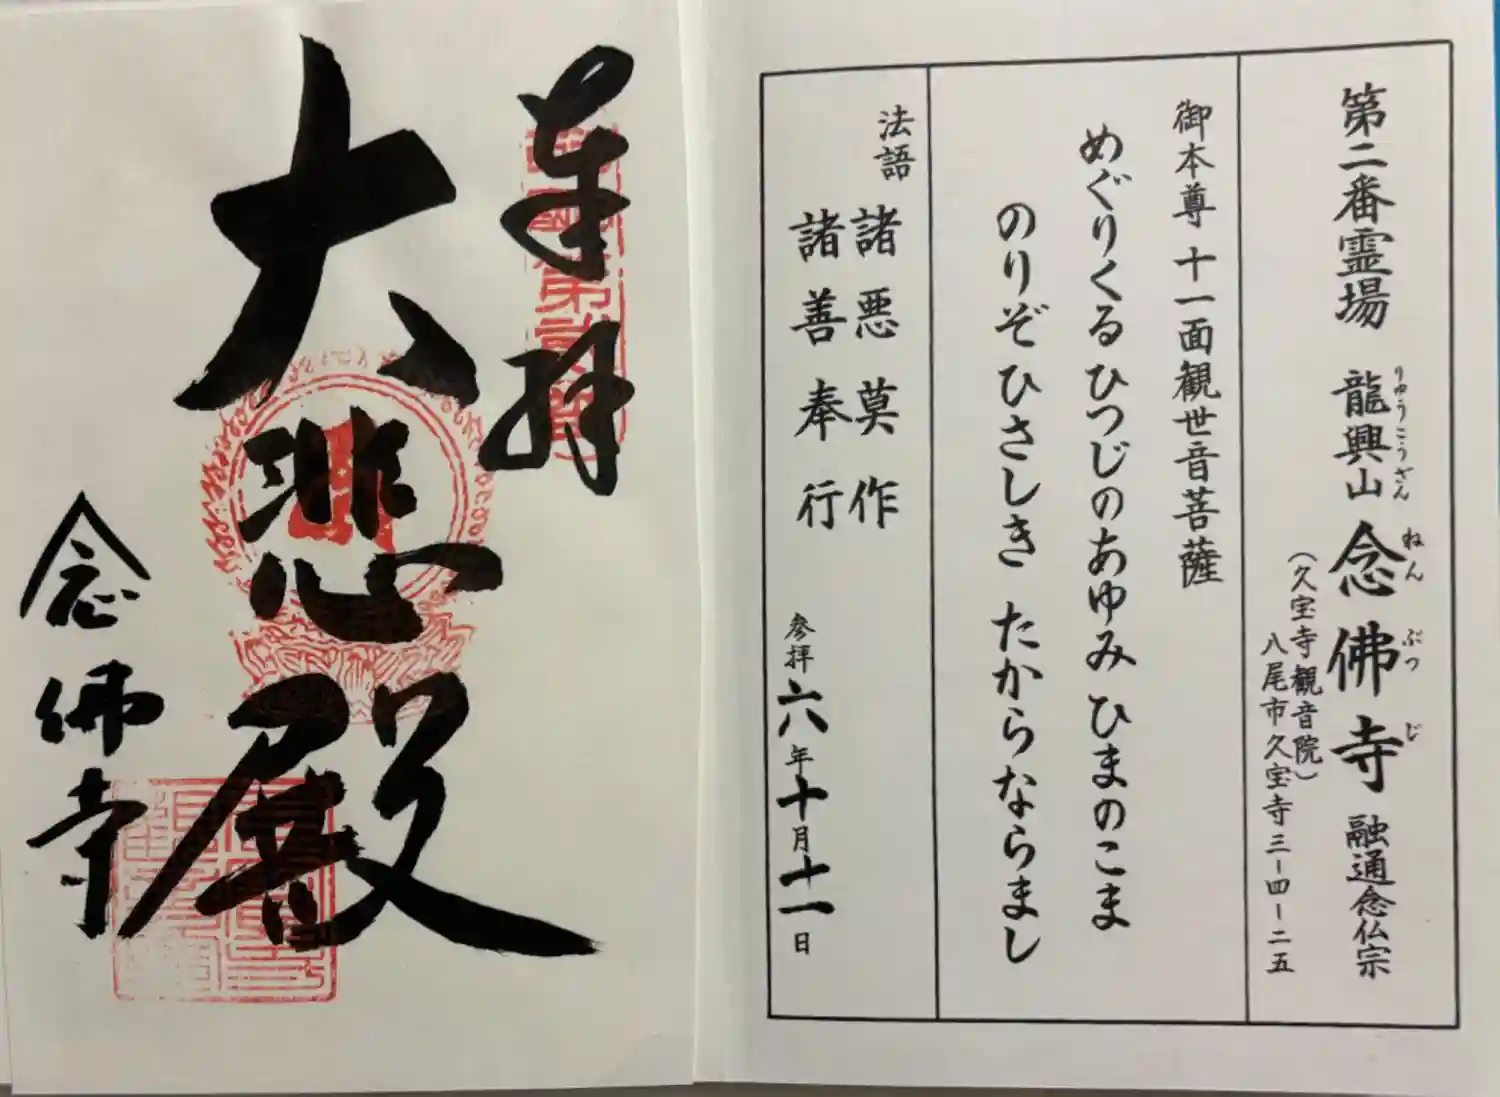 第二番霊場 龍興山 念佛寺 融通念仏宗
りゅうこうざん ねんぶつじ
(久宝寺観音院)
八尾市久宝寺三-四-二五
御本尊 十一面観世音菩薩
めぐりくるひつじのあゆみ ひまのこま
のりぞ ひさしき たからならまし
法語 諸悪莫作
諸善奉行
参拝 六年十月十一日
奉拝
大悲殿
念佛寺